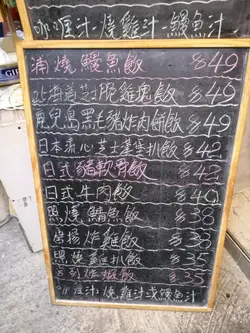 汁:燒雞汁:鰻魚汁
蒲燒鰻魚飯 $49
北海道芝士脆雞 飯 $49
鹿兒島黑毛豬炸肉餅飯 $49
日本流心芝士漢堡扒飯 $42
日式豬軟骨飯 $42
日式牛肉飯 $40
照燒鯖魚飯 $38
炸雞飯 $38
照燒雞扒飯 $35
飯 $35
汁:燒雞汁或鰻魚汁